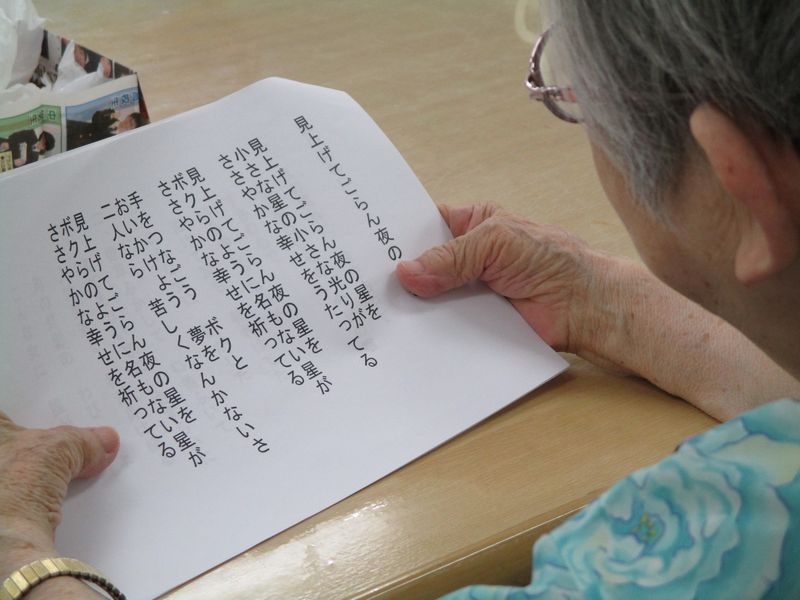 見上げてごらん夜の
見上げてごらん 夜の星を
小さな星の 小さな光りが
ささやかな幸せをうたってる
見上げてごらん 夜の星を
ボクらのように名もない星が
ささやかな幸せを祈ってる
手をつなごう ボクと
おいかけよう 夢を
二人なら 苦しくなんかないさ
見上げてごらん 夜の星を
ボクらのように名もない星が
ささやかな幸せを祈ってる